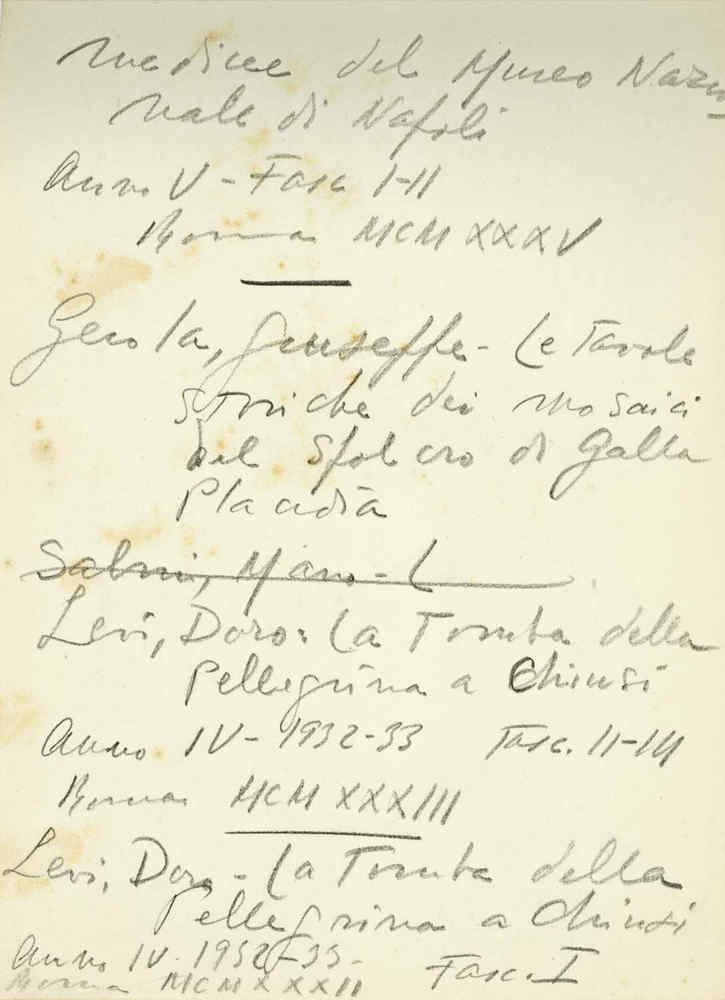 medicee del Museo Nazio
nale di Napoli
Anno V - Fasc I-II
Roma MCMXXXV
Gerola, Giuseppe - Le Tavole
storiche dei mosaici
del Sepolcro di Galla
Placidia
Salmi, Mario - L
Levi, Doro: La Tomba della
Pellegrina a Chiusi
Anno IV - 1932-33 Fasc. II-III
Roma MCMXXXIII
Levi, Doro - La Tomba della
Pellegrina a Chiusi
Anno IV. 1932-33-
Roma MCMXXXII Fasc. I